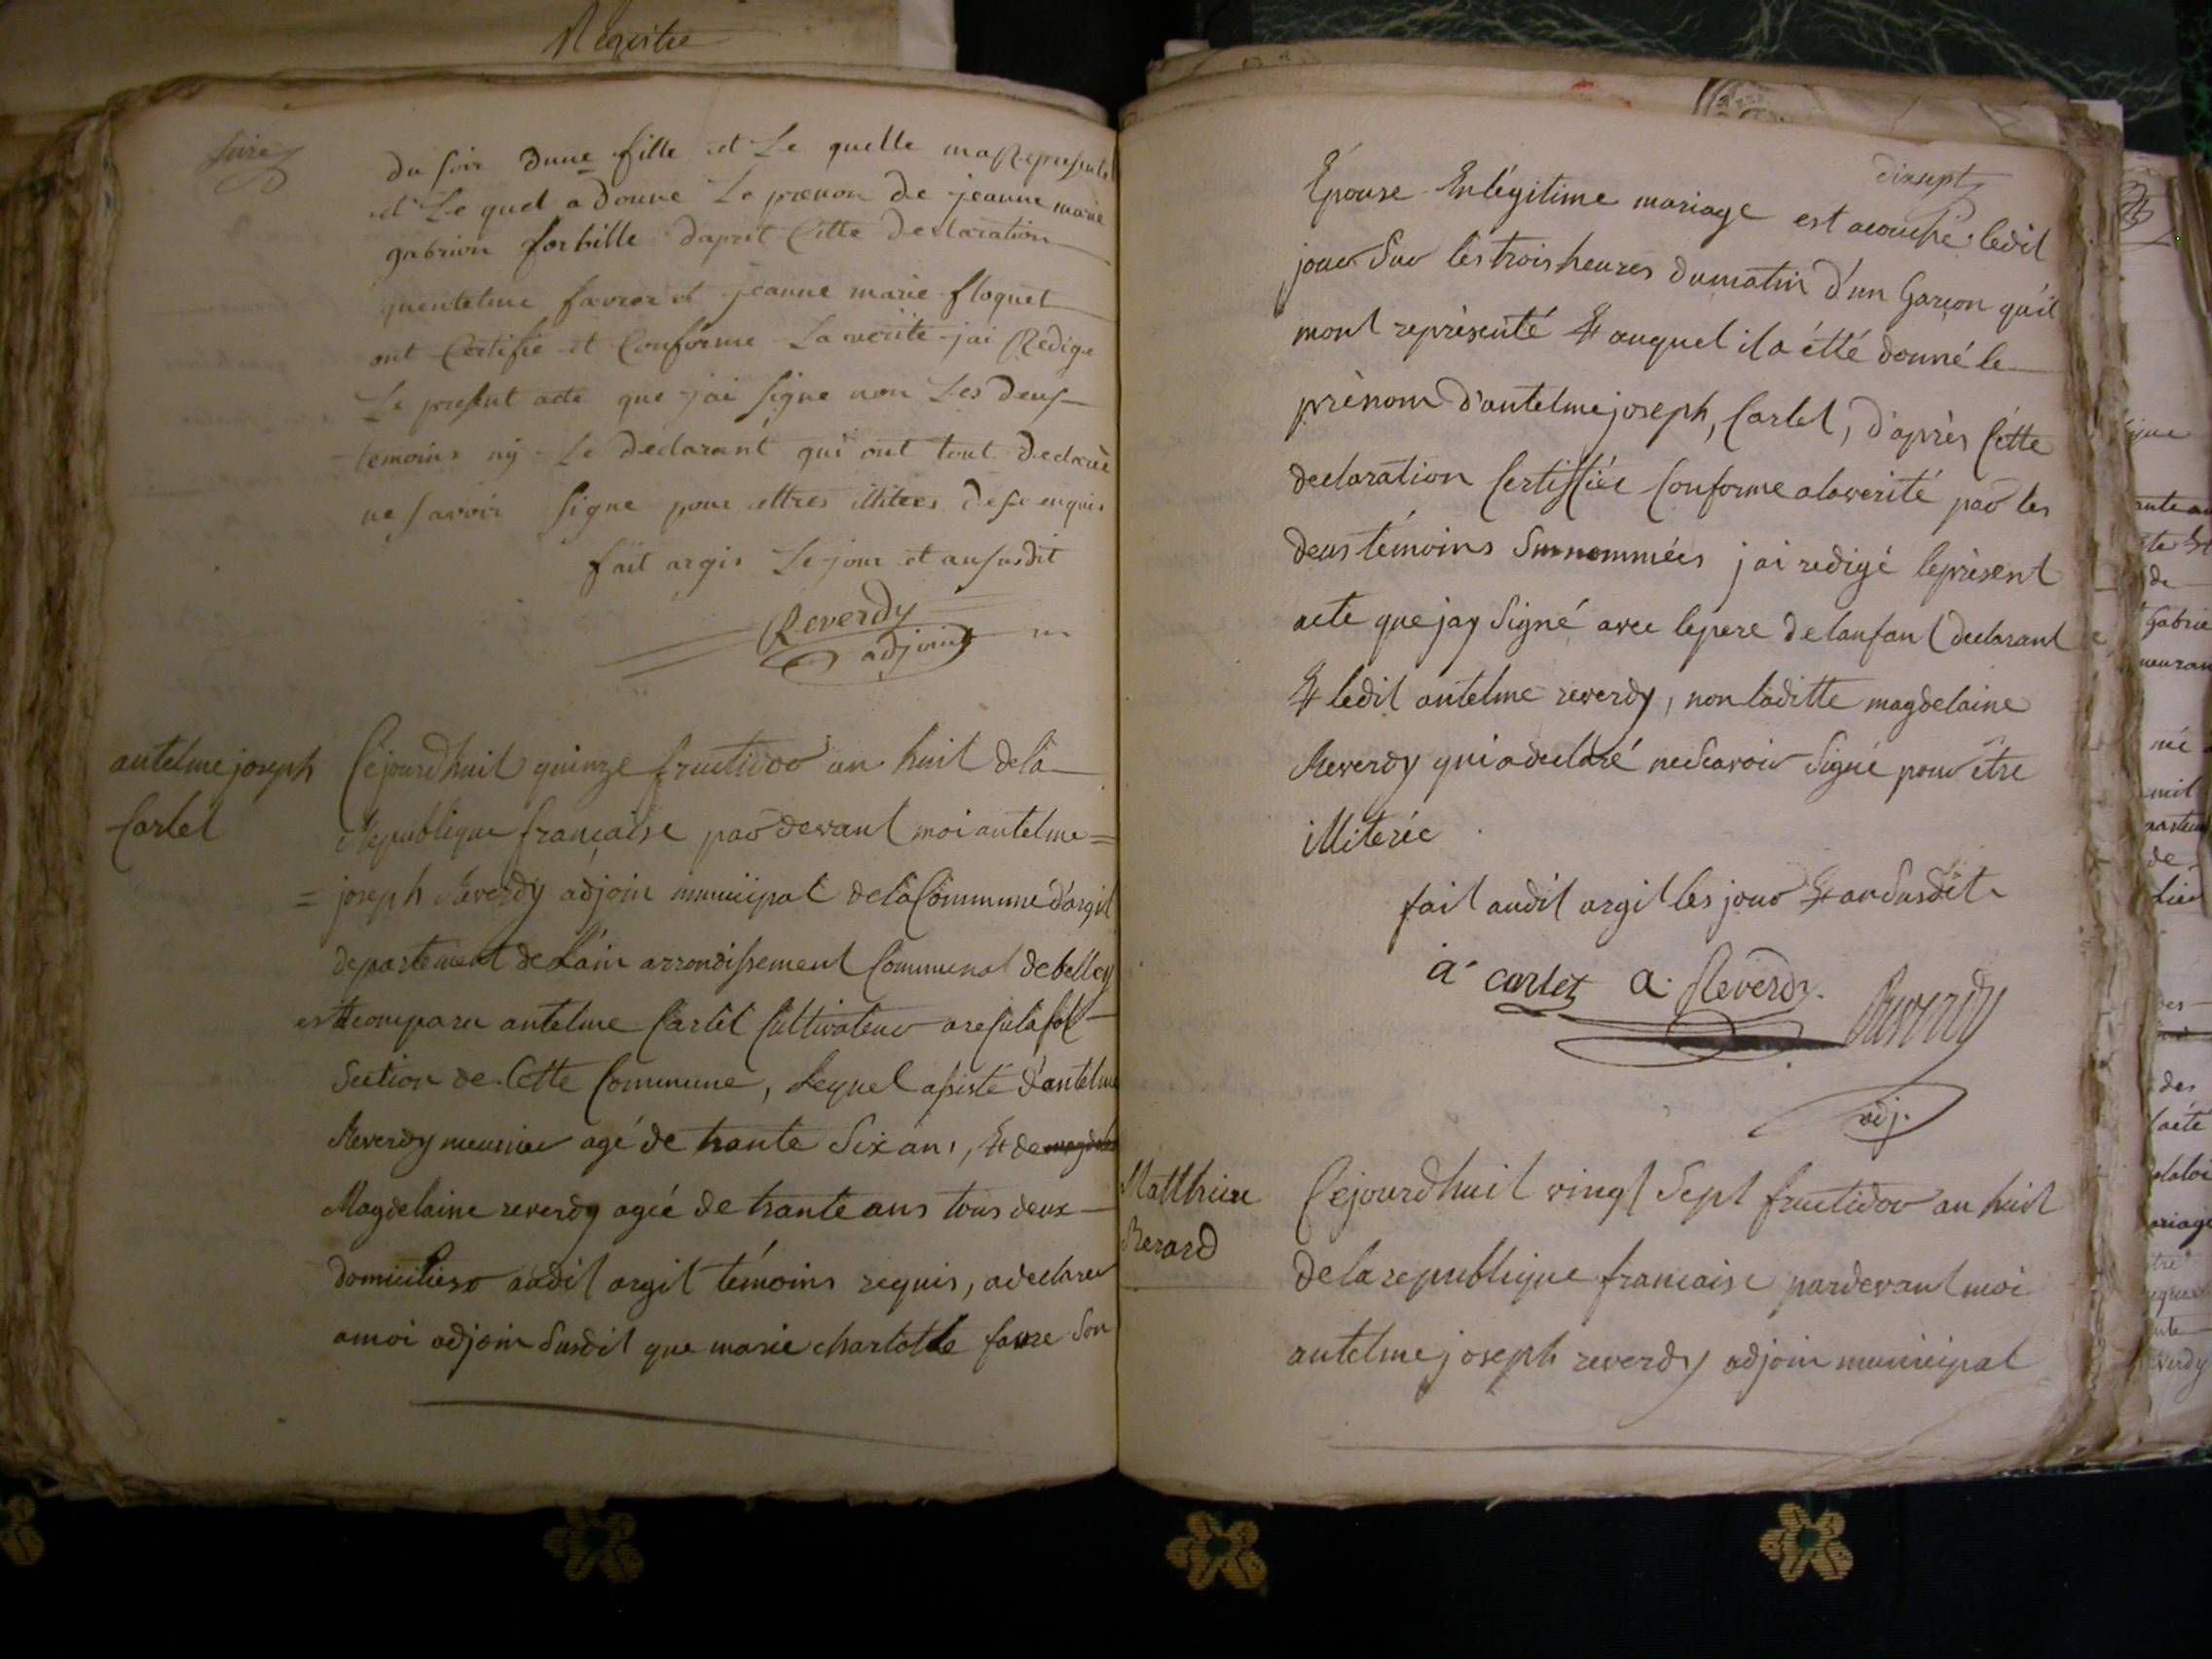 Registre
du soir dune fille et Le quelle ma Represente
et Le quel a donne Le prenon de jeanne marie
gabrion forbille daprit Cette declaration
quentelme favror et jeanne marie floquet
ont Certifie et Conforme La verite jai Redige
Le present acte que jai signe non Les deus
temoins ny Le declarant qui ont tout declaré
ne savoir signe pour ettres illiteres de se enquis
fait argis Le jour et an susdit
Reverdy
adjoint
antelme joseph
Carlet
Cejourdhuit quinze fructidor an huit dela
Republique française par devant moi antelme =
= joseph Reverdy adjoin municipal dela Commune d'argit
departement de Lain arrondissement Communal de belley
est comparu antelme Carlet Cultivateur
Section de Cette Commune, Lequel assisté d'antelme
Reverdy meunier agé de trante Six ans, Et de
Magdelaine reverdy ageé de trante ans tous deux
domiciliers audit argit témoins requis, a declarer
a moi adjoin Susdit que marie charlotte favre Son
dixsept
Épouse En légitime mariage est acouché ledit
jour Sur les trois heures dumatin d'un Garçon qu'il
mont représenté Et auquel il a étté donné le
prènom d'antelme joseph, Carlet, d'après Cètte
declaration Certiffiée Conforme alaverité par les
deus témoins Surnommées j ai redigé leprèsent
acte que jay Signé avec lepere de lanfant declarant
Et ledit antelme reverdy, non laditte magdelaine
Reverdy qui a declaré ne Scavoir Signé pour être
illiterée
fait audit argit les jour Et an Susdit
a carlet a. Reverdy. Reverdy
adj.
Matthieu
Berard
Cejourdhuit vingt Sept fructidor an huit
de la republique francaise pardevant moi
antelme joseph reverdy adjoin municipal